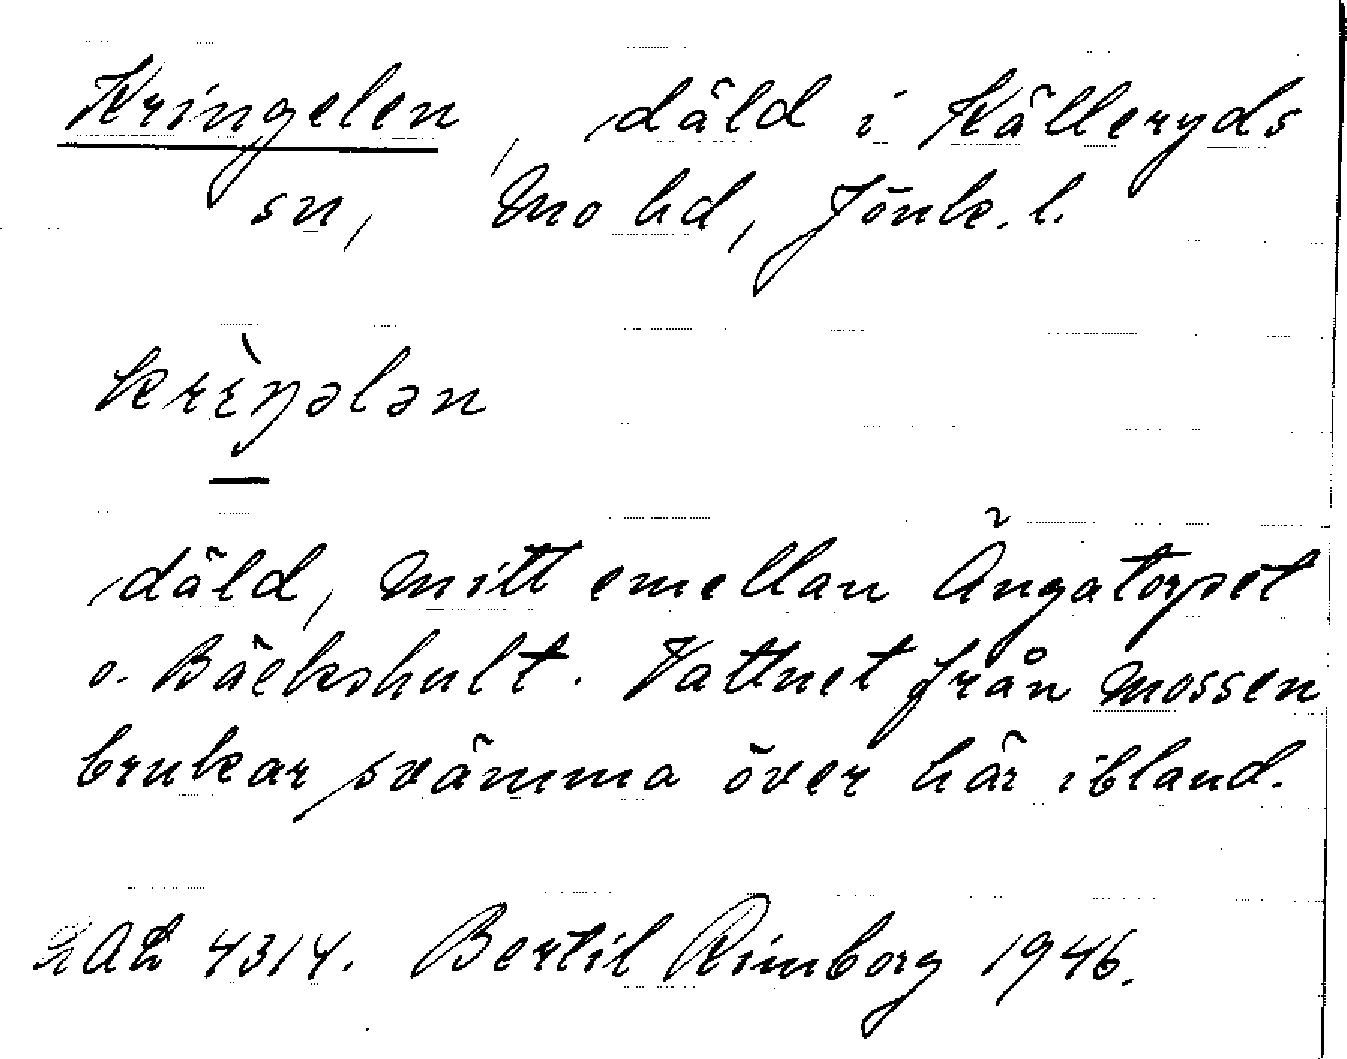 Kringelen, däld i Källeryds
sn, Mo hd, Jönk. l.
krìŋələn
däld, mitt emellan Ängatorpet
o. Bäckshult. Vattnet från mossen
brukar svämma över här ibland.
LAL 4314. Bertil Rimborg 1946.